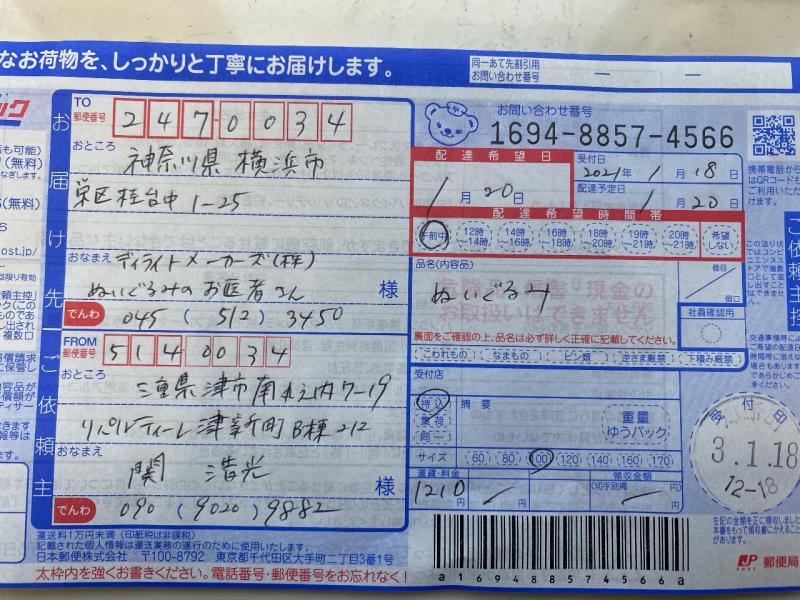 なお荷物を、しっかりと丁寧にお届けします。
同一あて先割引用
お問い合わせ番号
TO
郵便番号
247-0034
おところ
神奈川県 横浜市
栄区桂台中 1-25
おなまえ
ディライトメーカーズ(株)
ぬいぐるみのお医者さん
様
でんわ
045 ( 512 ) 3450
お届け先
FROM
郵便番号
514-0034
おところ
三重県津市南丸之内7-19
リバルティーレ津新町B棟212
おなまえ
関
様
でんわ
090 ( 9020 ) 9882
ご依頼主
運送料1万円未満 (印紙税は非課税)
記載された個人情報は運送業務の遂行のために使用いたします。
日本郵便株式会社 〒100-8792 東京都千代田区大手町二丁目3番1号
太枠内を強くお書きください。電話番号・郵便番号をお忘れなく!
お問い合わせ番号
1694-8857-4566
配達希望日
1月20日
受付日
2021年 1月18日
配達予定日
1月20日
配達希望時間帯
午前中
12時～14時
14時～16時
16時～18時
18時～20時
19時～21時
20時～21時
希望しない
品名(内容品)
ぬいぐるみ
個目
個口
社員確認用
裏面をご確認の上、品名は必ず詳しく正確に記載してください。
こわれもの
なまもの
ビン類
逆さま厳禁
下積み厳禁
受付店
持込
集荷
同一
摘要
重量
ゆうパック
サイズ
60 80 100 120 140 160 170
運賃・料金
1210円
領収金額
(切手別納)
円
受付印
3.1.18
12-18
a169488574566a
郵便局